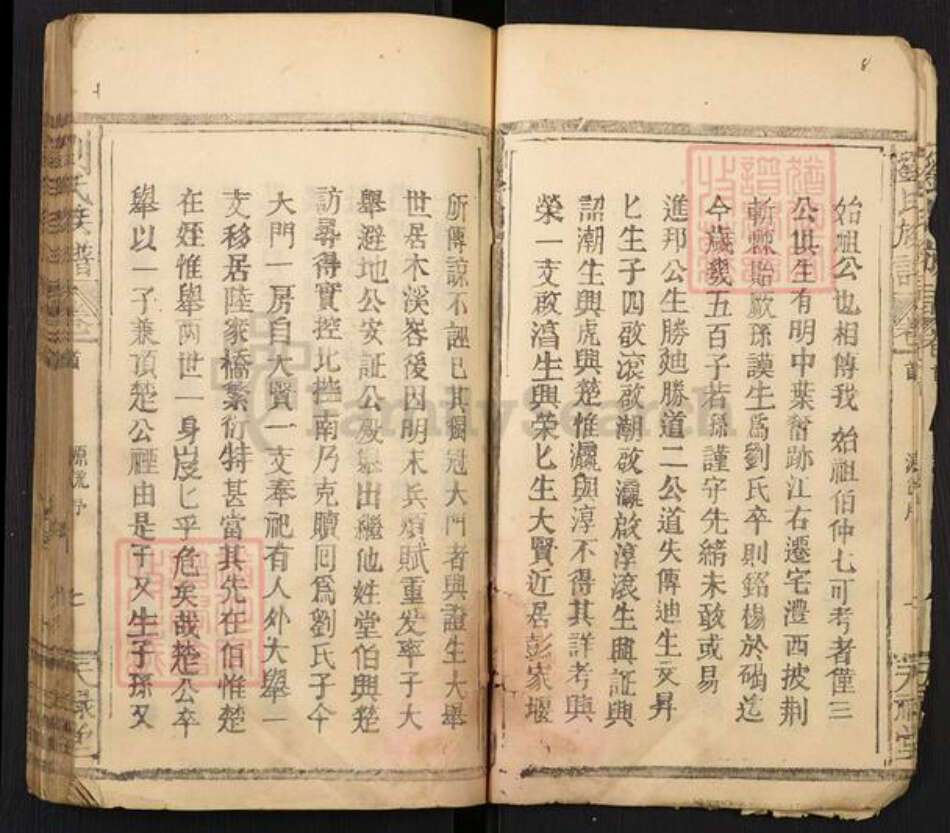 8
始祖公也相傳我 始祖伯仲七可考者僅三
公俱生有明中葉奮跡江右遷宅澧西披荆
斬棘貽厥孫謨生為劉氏卒則銘楊於碣迄
今歲幾五百子若孫謹守先緒未敢或易
進邦公生勝廸勝道二公道失傳迪生文昇
匕生子四啟滾啟潮啟灟啟淳滾生興証興
詔潮生興虎興楚惟灟與淳不得其詳考興
榮一支啟濸生興荣匕生大賢近居彭家堰
所傳諒不誣已其獨冠大門者興證生大舉
世居木溪峉後因明末兵煩賦重发率子大
舉避地公安証公歿舉出繼他姓堂伯興楚
訪尋得實控北控南乃克贖囘為劉氏子今
大門一房自大賢一支奉祀有人外大舉一
支移居陸家橋繁衍特甚當其先在伯惟楚
在姪惟舉兩世一身岌匕乎危矣哉楚公卒
舉以一子兼頂楚公禋由是子又生子孫又
劉氏族譜 卷首 源流序 七